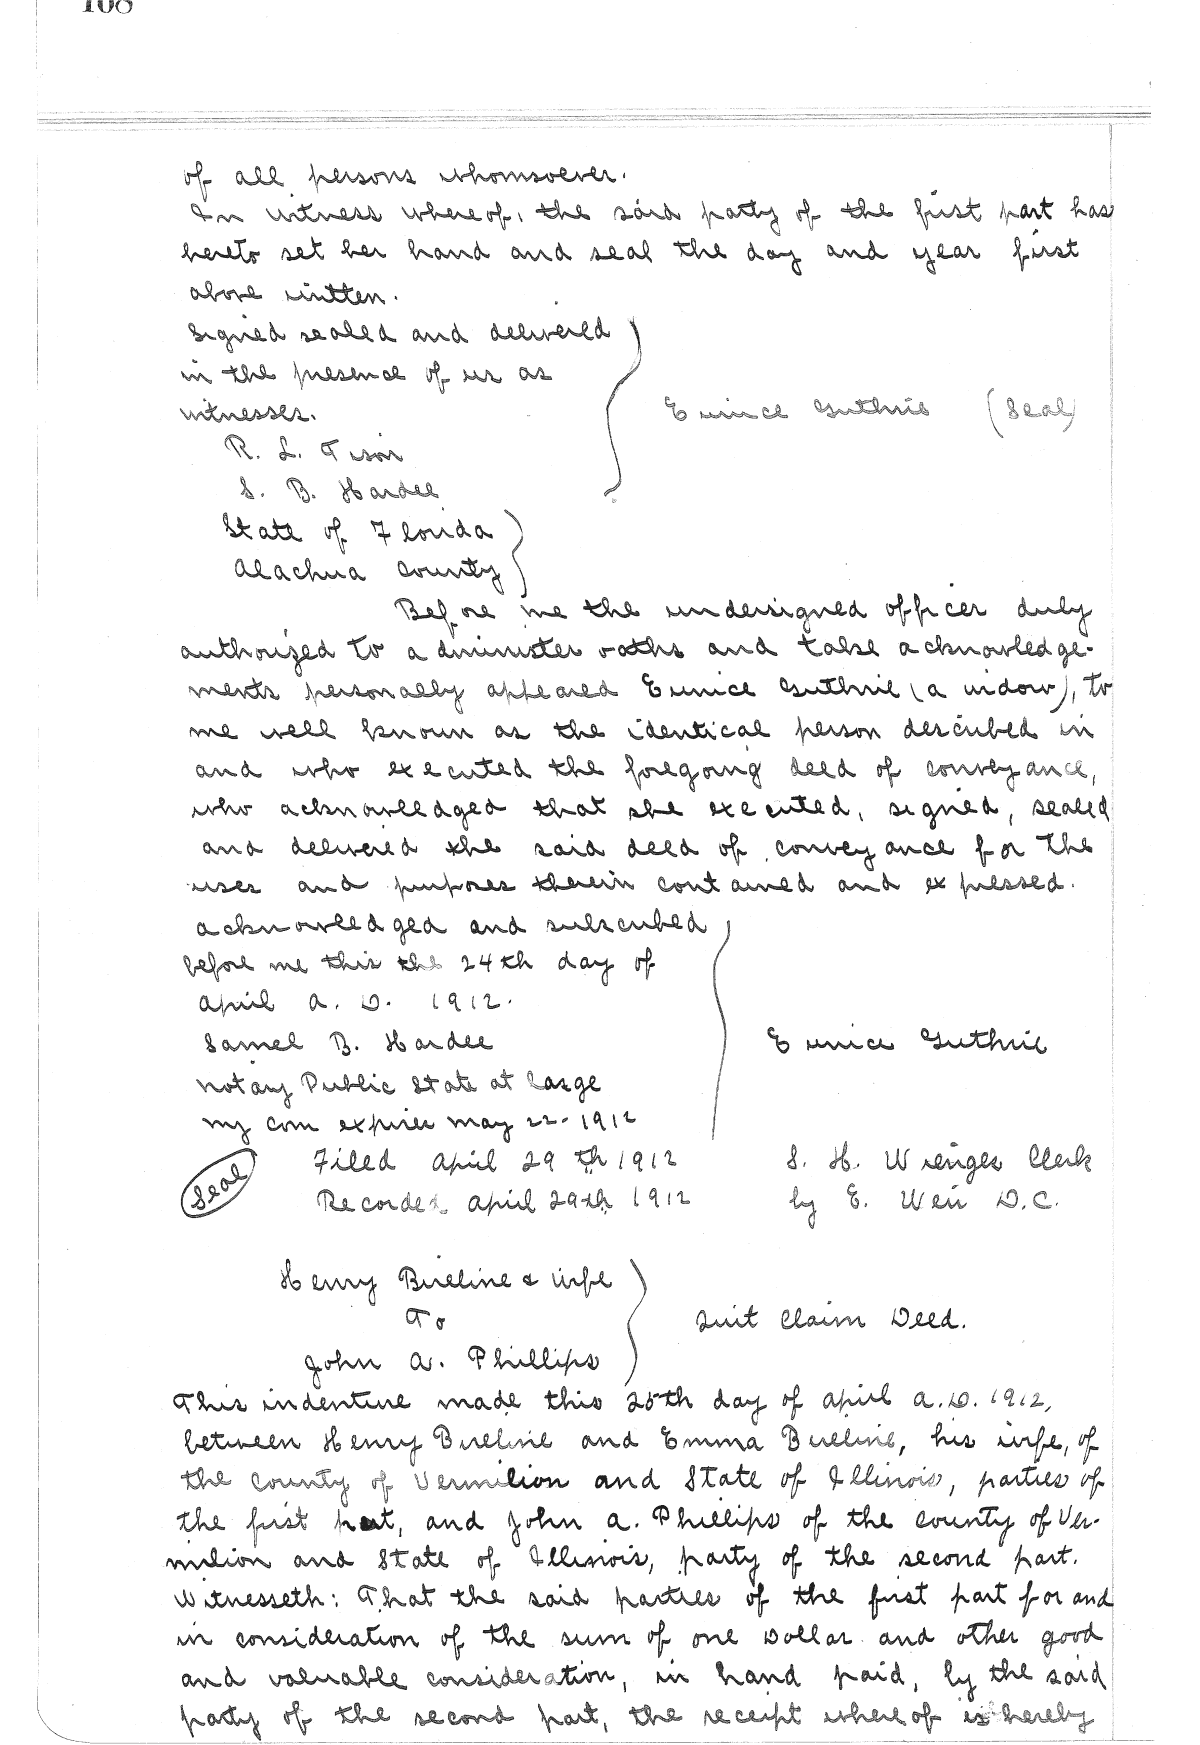 108
of all persons whomsoever.
In witness whereof, the said party of the first part has
hereto set her hand and seal the day and year first
above written.
Signed sealed and delivered
in the presence of us as
witnesses.
Eunice Guthrie (Seal)
R. L. Tison
S. B. Hardee
State of Florida
Alachua County
Before me the undersigned officer duly
authorized to administer oaths and take acknowledge-
ments personally appeared Eunice Guthrie (a widow), to
me well known as the identical person described in
and who executed the foregoing deed of conveyance,
who acknowledged that she executed, signed, sealed
and delivered the said deed of conveyance for the
uses and purposes therein contained and expressed.
Acknowledged and subscribed
before me this the 24th day of
April A. D. 1912.
Samel B. Hardee
Eunice Guthrie
Notary Public State at Large
My com expires May 22-1912
Seal
Filed April 29th 1912 S. H. Wienges Clerk
Recorded April 29th 1912 by E. Weir D.C.
Henry Bireline & wife
To
Quit Claim Deed.
John A. Phillips
This indenture made this 25th day of April A.D. 1912,
between Henry Bireline and Emma Bireline, his wife, of
the county of Vermilion and State of Illinois, parties of
the first part, and John A. Phillips of the county of Ver-
milion and State of Illinois, party of the second part.
Witnesseth: That the said parties of the first part for and
in consideration of the sum of one Dollar and other good
and valuable consideration, in hand paid, by the said
party of the second part, the receipt whereof is hereby